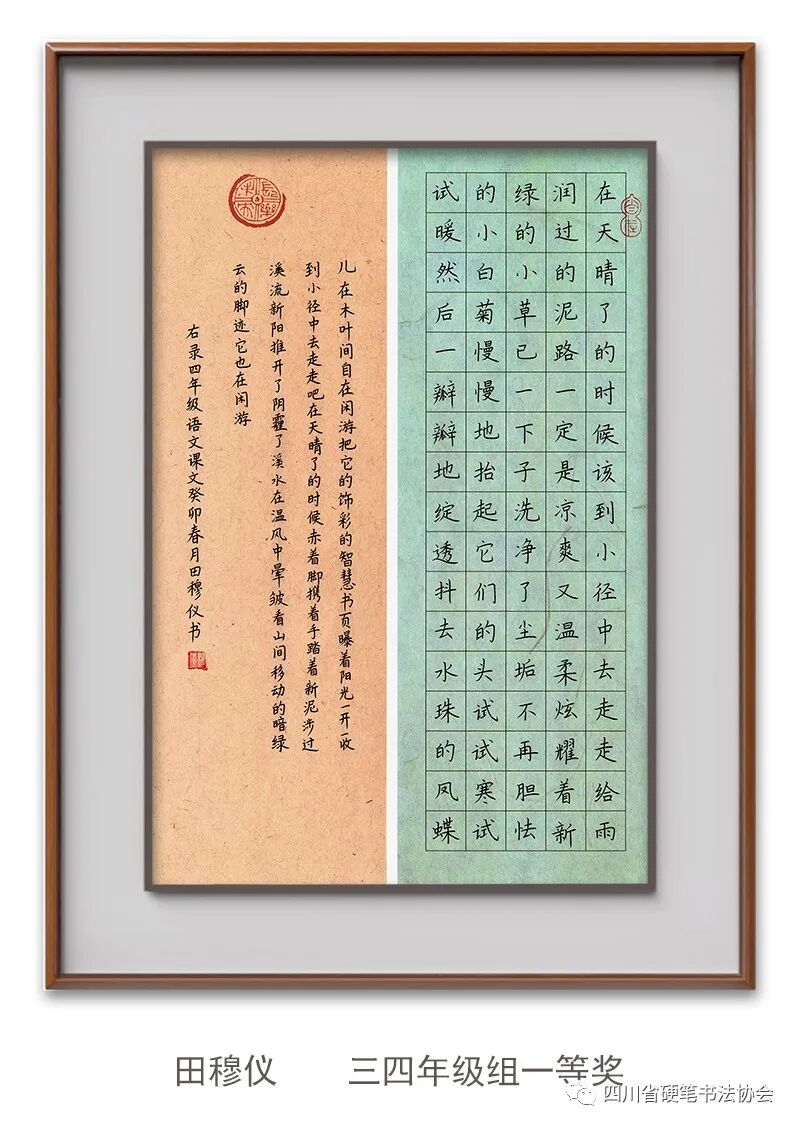 在天晴了的时候该到小径中去走走给雨
润过的泥路一定是凉爽又温柔炫耀着新
绿的小草已一下子洗净了尘垢不再胆怯
的小白菊慢慢地抬起它们的头试试寒试
试暖然后一瓣瓣地绽透抖去水珠的凤蝶
儿在木叶间自在闲游把它的饰彩的智慧书页曝着阳光一开一收
到小径中去走走吧在天晴了的时候赤着脚携着手踏着新泥涉过
溪流新阳推开了阴霾了溪水在温风中晕皱看山间移动的暗绿
云的脚迹它也在闲游
右录四年级语文课文癸卯春月田穆仪书
田穆仪 三四年级组一等奖
四川省硬笔书法协会